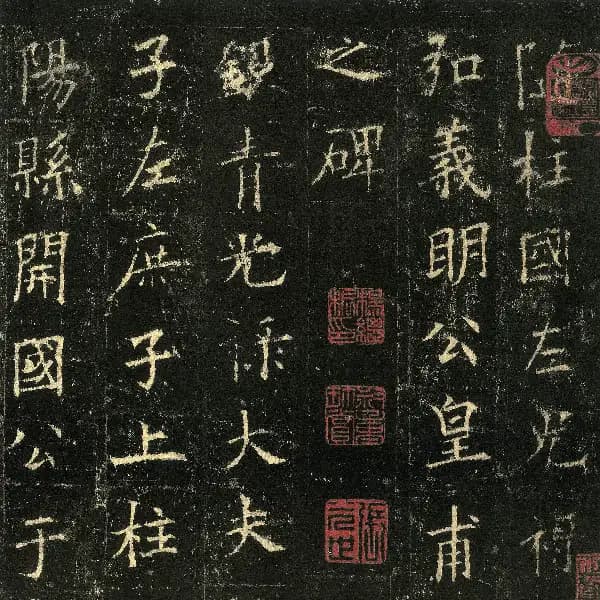 柱國左光祿
弘義明公皇甫
之碑
銀青光祿大夫
子左庶子上柱
陽縣開國公于